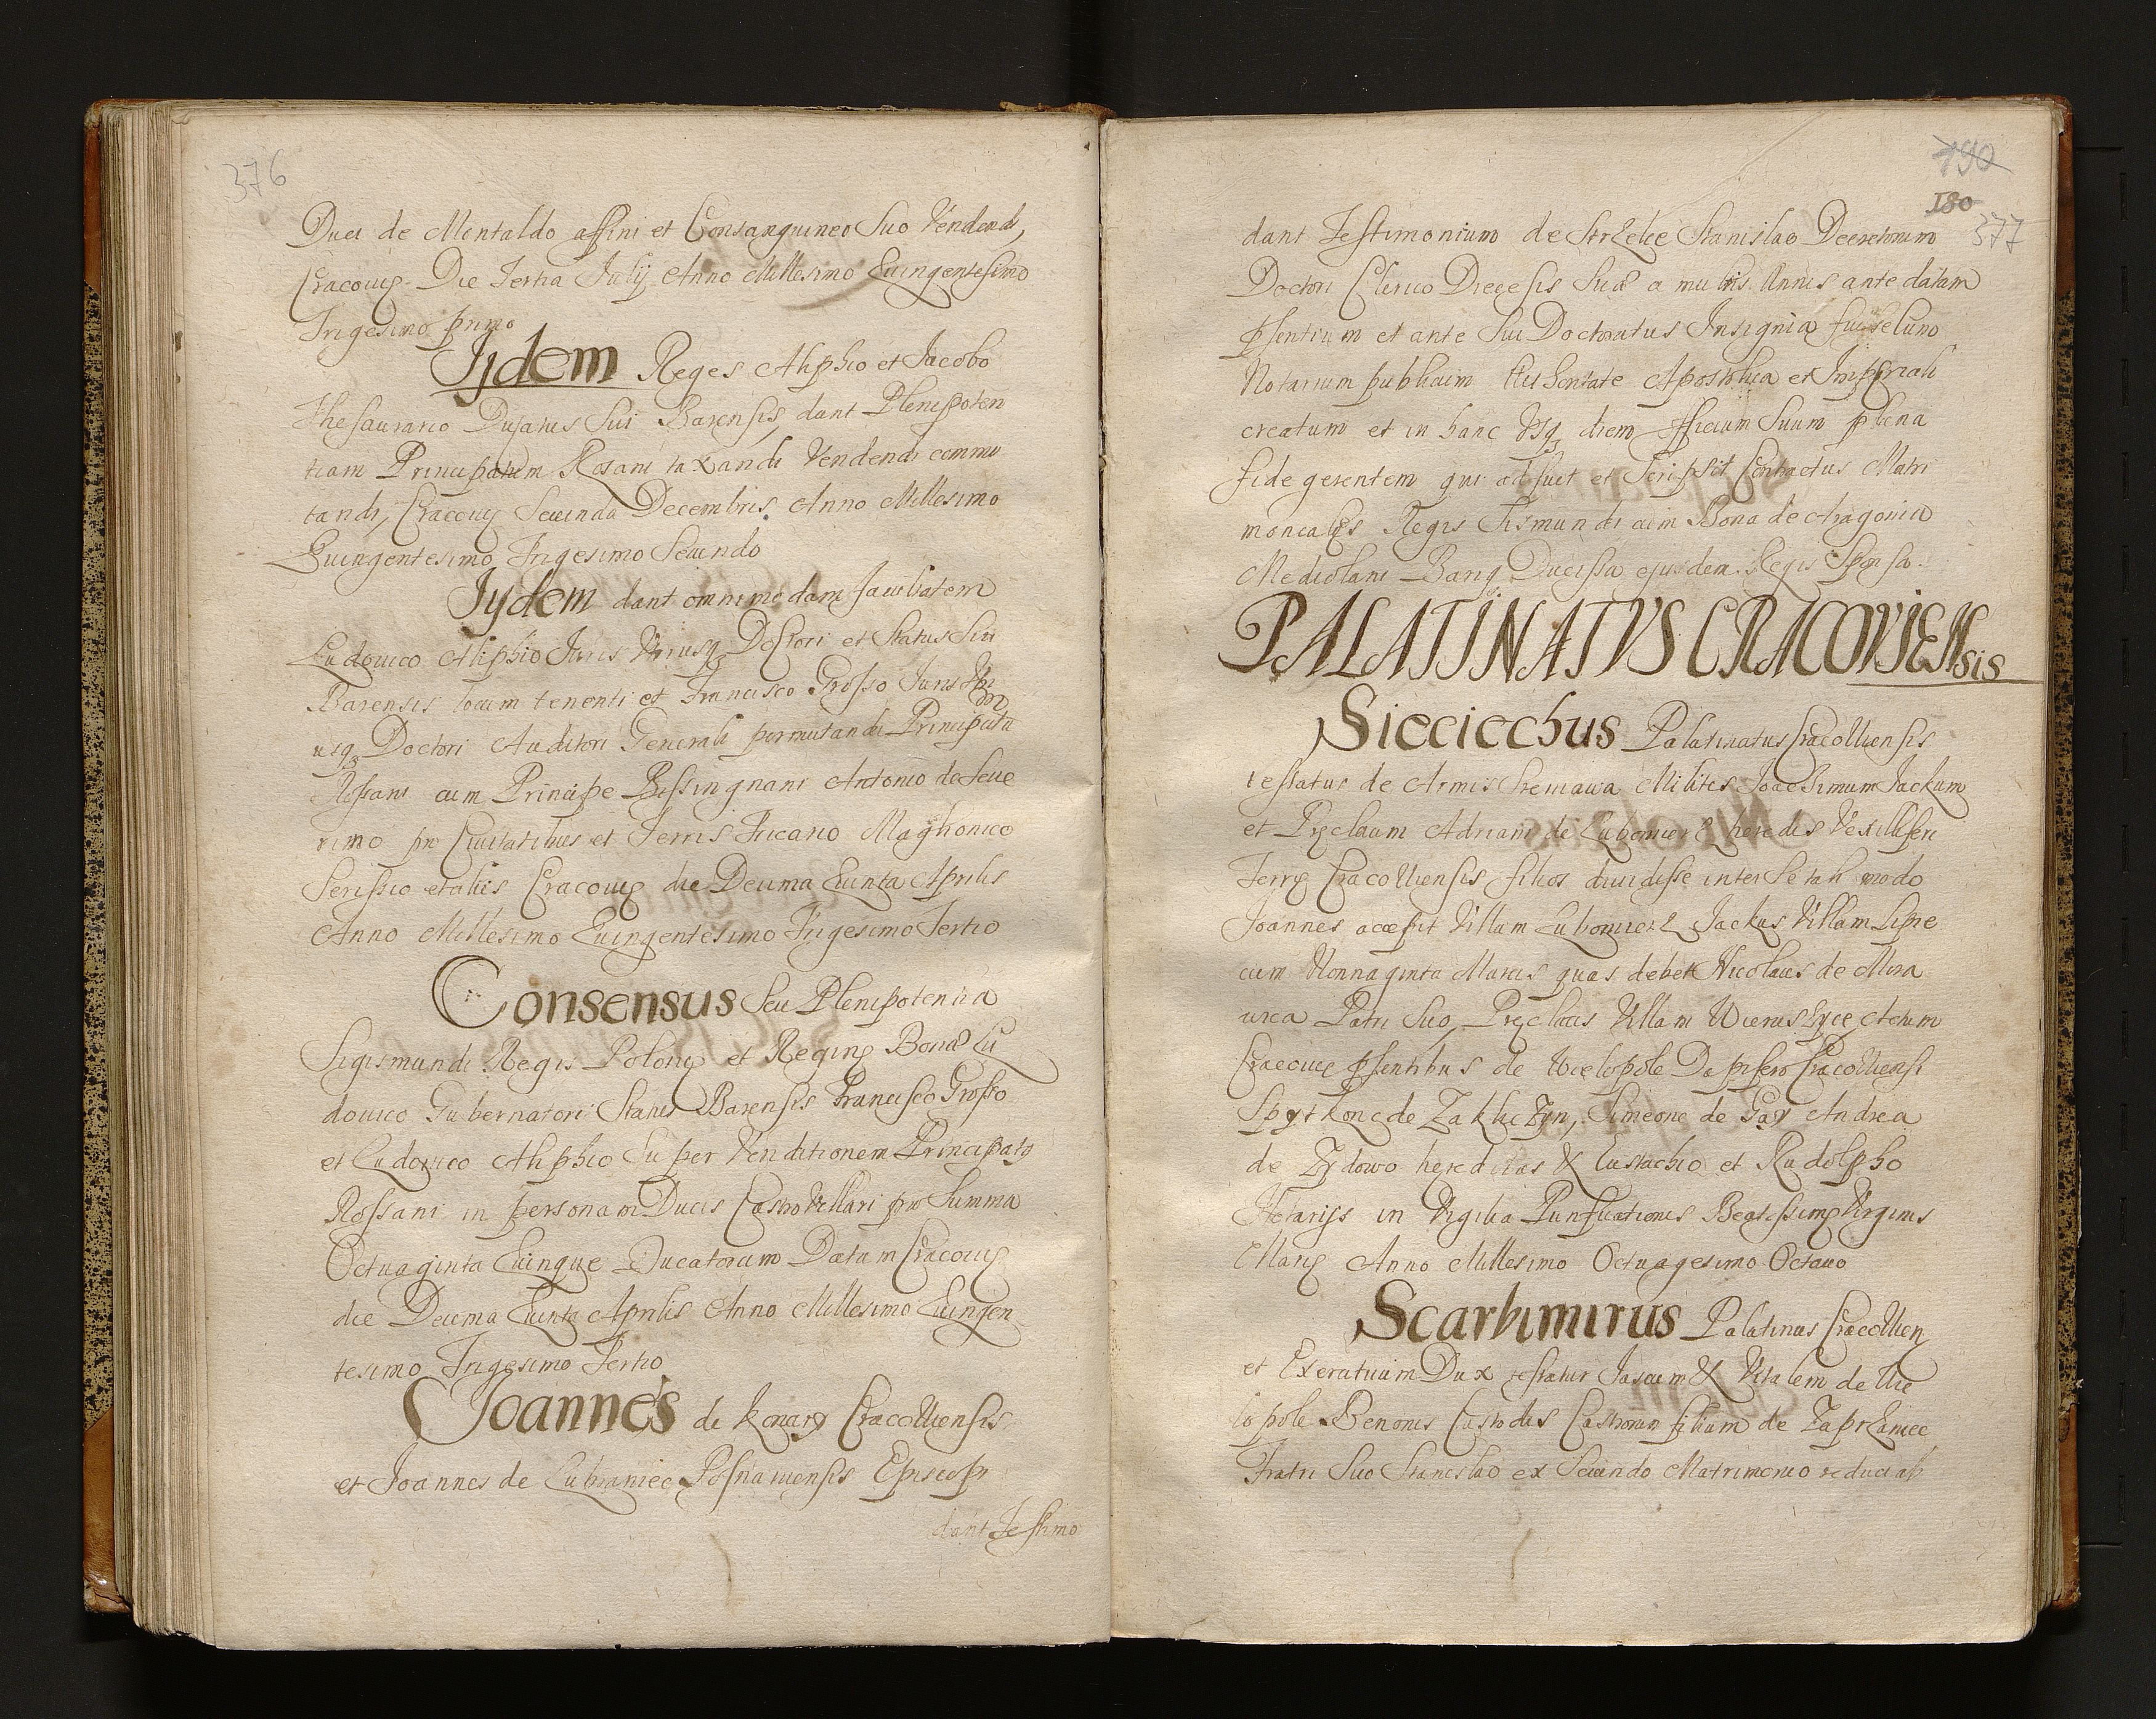 376
Duci de Montaldo affini et Consanguineo Suo Vendendi,
Cracovię Die Tertia Julij Anno Millesimo Quingentesimo
Trigesimo primo
Ijdem Reges Aliphio et Jacobo
Thesaurario Dusatus Sui Barensis, dant Plenipoten
tiam Principatum Rosani taxandi Vendendi commu
tandi, Cracovię Secunda Decembris Anno Millesimo
Quingentesimo Trigesimo Secundo
Iydem dant omnimodam facultatem
Ludovico Aliphio Juris Utriusq3 Doctori et Status Sui
Barensis locum tenenti et Francisco Grosso Juris Utri
usq3 Doctori Auditori Generali permutandi Principatū
Rossani cum Principe Bissingnani Antonio de Seve
rimo pro Civitatibus et Terris Maghonico
et aliis Cracovię die Decima Quinta Aprilis
Anno Millesimo Quingentesimo Trigesimo Tertio
Consensus Seu Plenipotentia
Sigismundi Regis Polonię et Reginę Bonæ Lu
dovico Gubernatori Status Barensis Francisco Grosso
et Ludovico Aliphio Super Venditionem Principatus
Rossani in personam Ducis Castro Villari pro Summa
Octuaginta Quinque Ducatorum Datum Cracovię
die Decima Quinta Aprilis Anno Millesimo Quingen
tesimo Trigesimo Tertio
Joannes de Konary Cracoviensis
et Joannes de Lubraniec Posnaniensis Episcopi
dant Testimo
190
180
377
dant Testimonium de Strzelce Stanislao Decretorum
Doctori Clerico Diecesis Suæ a multis Annis ante datam
psentium et ante Sui Doctoratus Insignia fuisse Suno
Notarium publicum Authoritate Apostolica et Imperiali
creatum et in hanc Usq3 diem officium Suum plena
fide gerentem qui adfuit et Scripsit Contractus Matri
moniales Regis Sismundi cum Bona de Aragonia
Mediolani Barię Ducissa ejusdem Regis Sponsa.
PALATINATVS CRACOVIENsis
Sieciechus Palatinatus Cracoviensis
testatur de Armis Srzeniawa Milites Joachimum Jackum
et Pręclaum Adriani de Lubomierz heredis Vexilliferi
Terrę Cracoviensis filios divisisse inter Se tali modo
Joannes accepit Villam Lubomierz Jackus Villam Lipie
cum Nonnaginta Marcis quas debet Nicolaus de Mora
wica Patri Suo, Pręclaus Villam Wieruszyce Actum
Cracovię psentibus de Wielopole Dapifero Cracoviensi
Spytkone de Zakliczyn, Simeone de Gay Andrea
de Zydowo heredibus & Eustachio et Rudolpho
Notarijs in Vigilia Purificationis Beatissimę Virginis
Marię Anno Millesimo Octuagesimo Octavo
Scarbimirus Palatinus Cracovien
et Exercituum Dux testatur Jascum & Vitalem de Wie
lopole Benonis Custodis Castrorum filium de Zaprzaniec
Fratri Suo Stanislao ex Secundo Matrimonio